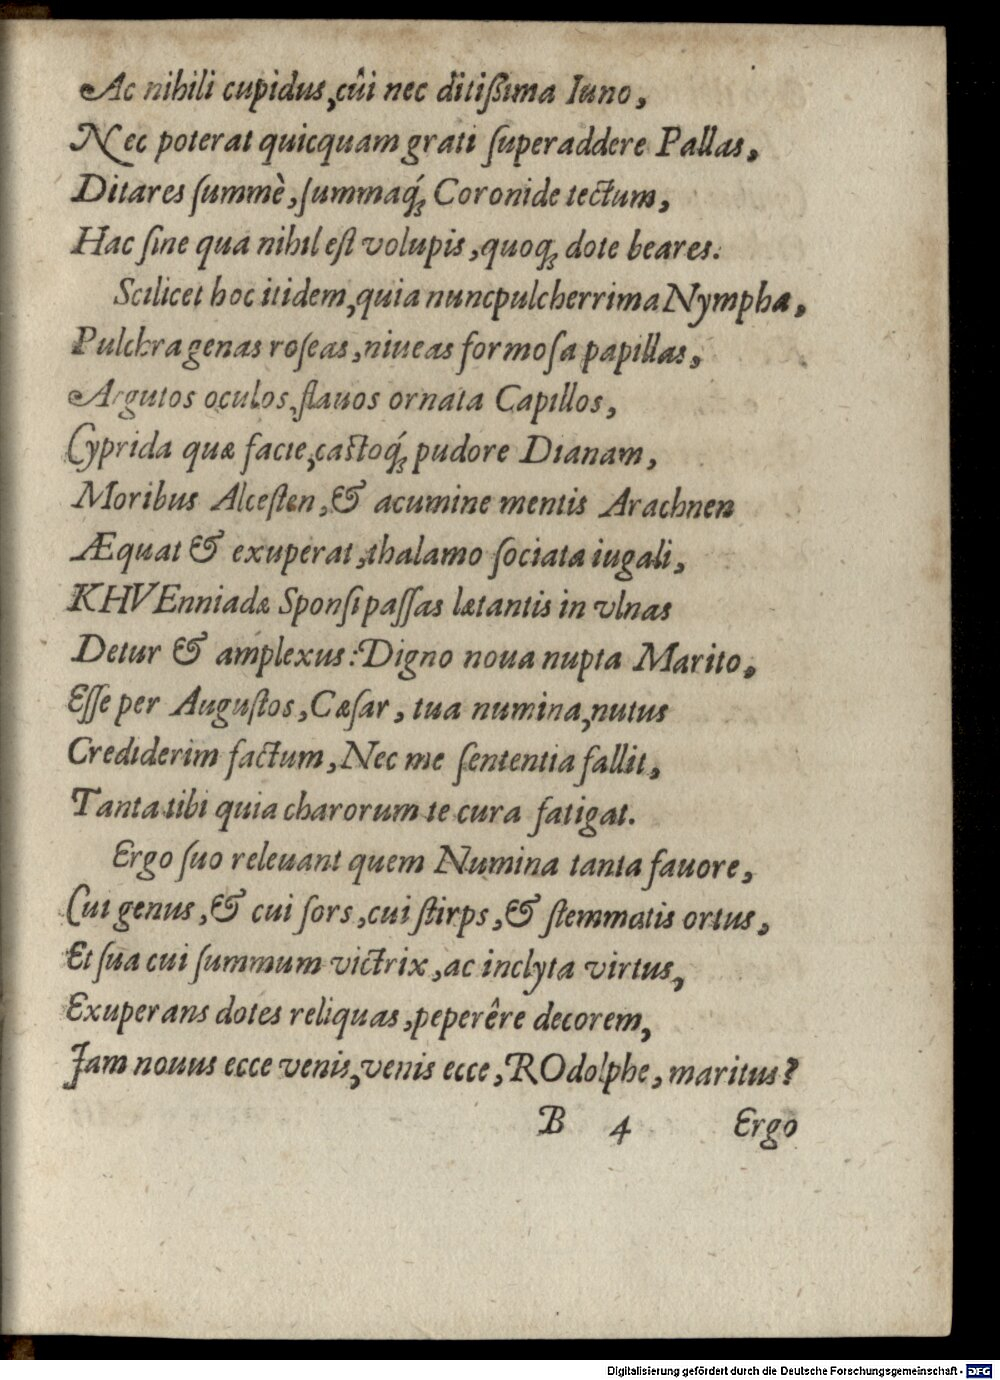 Ac nihili cupidus, cûi nec ditiſſima Iuno,
Nec poterat quicquam grati ſuperaddere Pallas,
Ditares ſummè, ſummaq́ꝫ Coronide tectum,
Hac ſine qua nihil eſt volupis, quoqꝫ dote beares.
Scilicet hoc itidem, quia nunc pulcherrima Nympha,
Pulchra genas roſeas, niueas formoſa papillas,
Argutos oculos, flauos ornata Capillos,
Cyprida quæ facie, caſtoq́ꝫ pudore Dianam,
Moribus Alceſten, & acumine mentis Arachnen
Æquat & exuperat, thalamo ſociata iugali,
KHVEnniadæ Sponſi paſſas lætantis in vlnas
Detur & amplexus: Digno noua nupta Marito,
Eſſe per Auguſtos, Cæſar, tua numina, nutus
Crediderim factum, Nec me ſententia fallit,
Tanta tibi quia charorum te cura fatigat.
Ergo ſuo releuant quem Numina tanta fauore,
Cui genus, & cui ſors, cui ſtirps, & ſtemmatis ortus,
Et ſua cui ſummum victrix, ac inclyta virtus,
Exuperans dotes reliquas, peperêre decorem,
Jam nouus ecce venis, venis ecce, ROdolphe, maritus?
B 4 Ergo
Digitalisierung gefördert durch die Deutsche Forschungsgemeinschaft - DFG